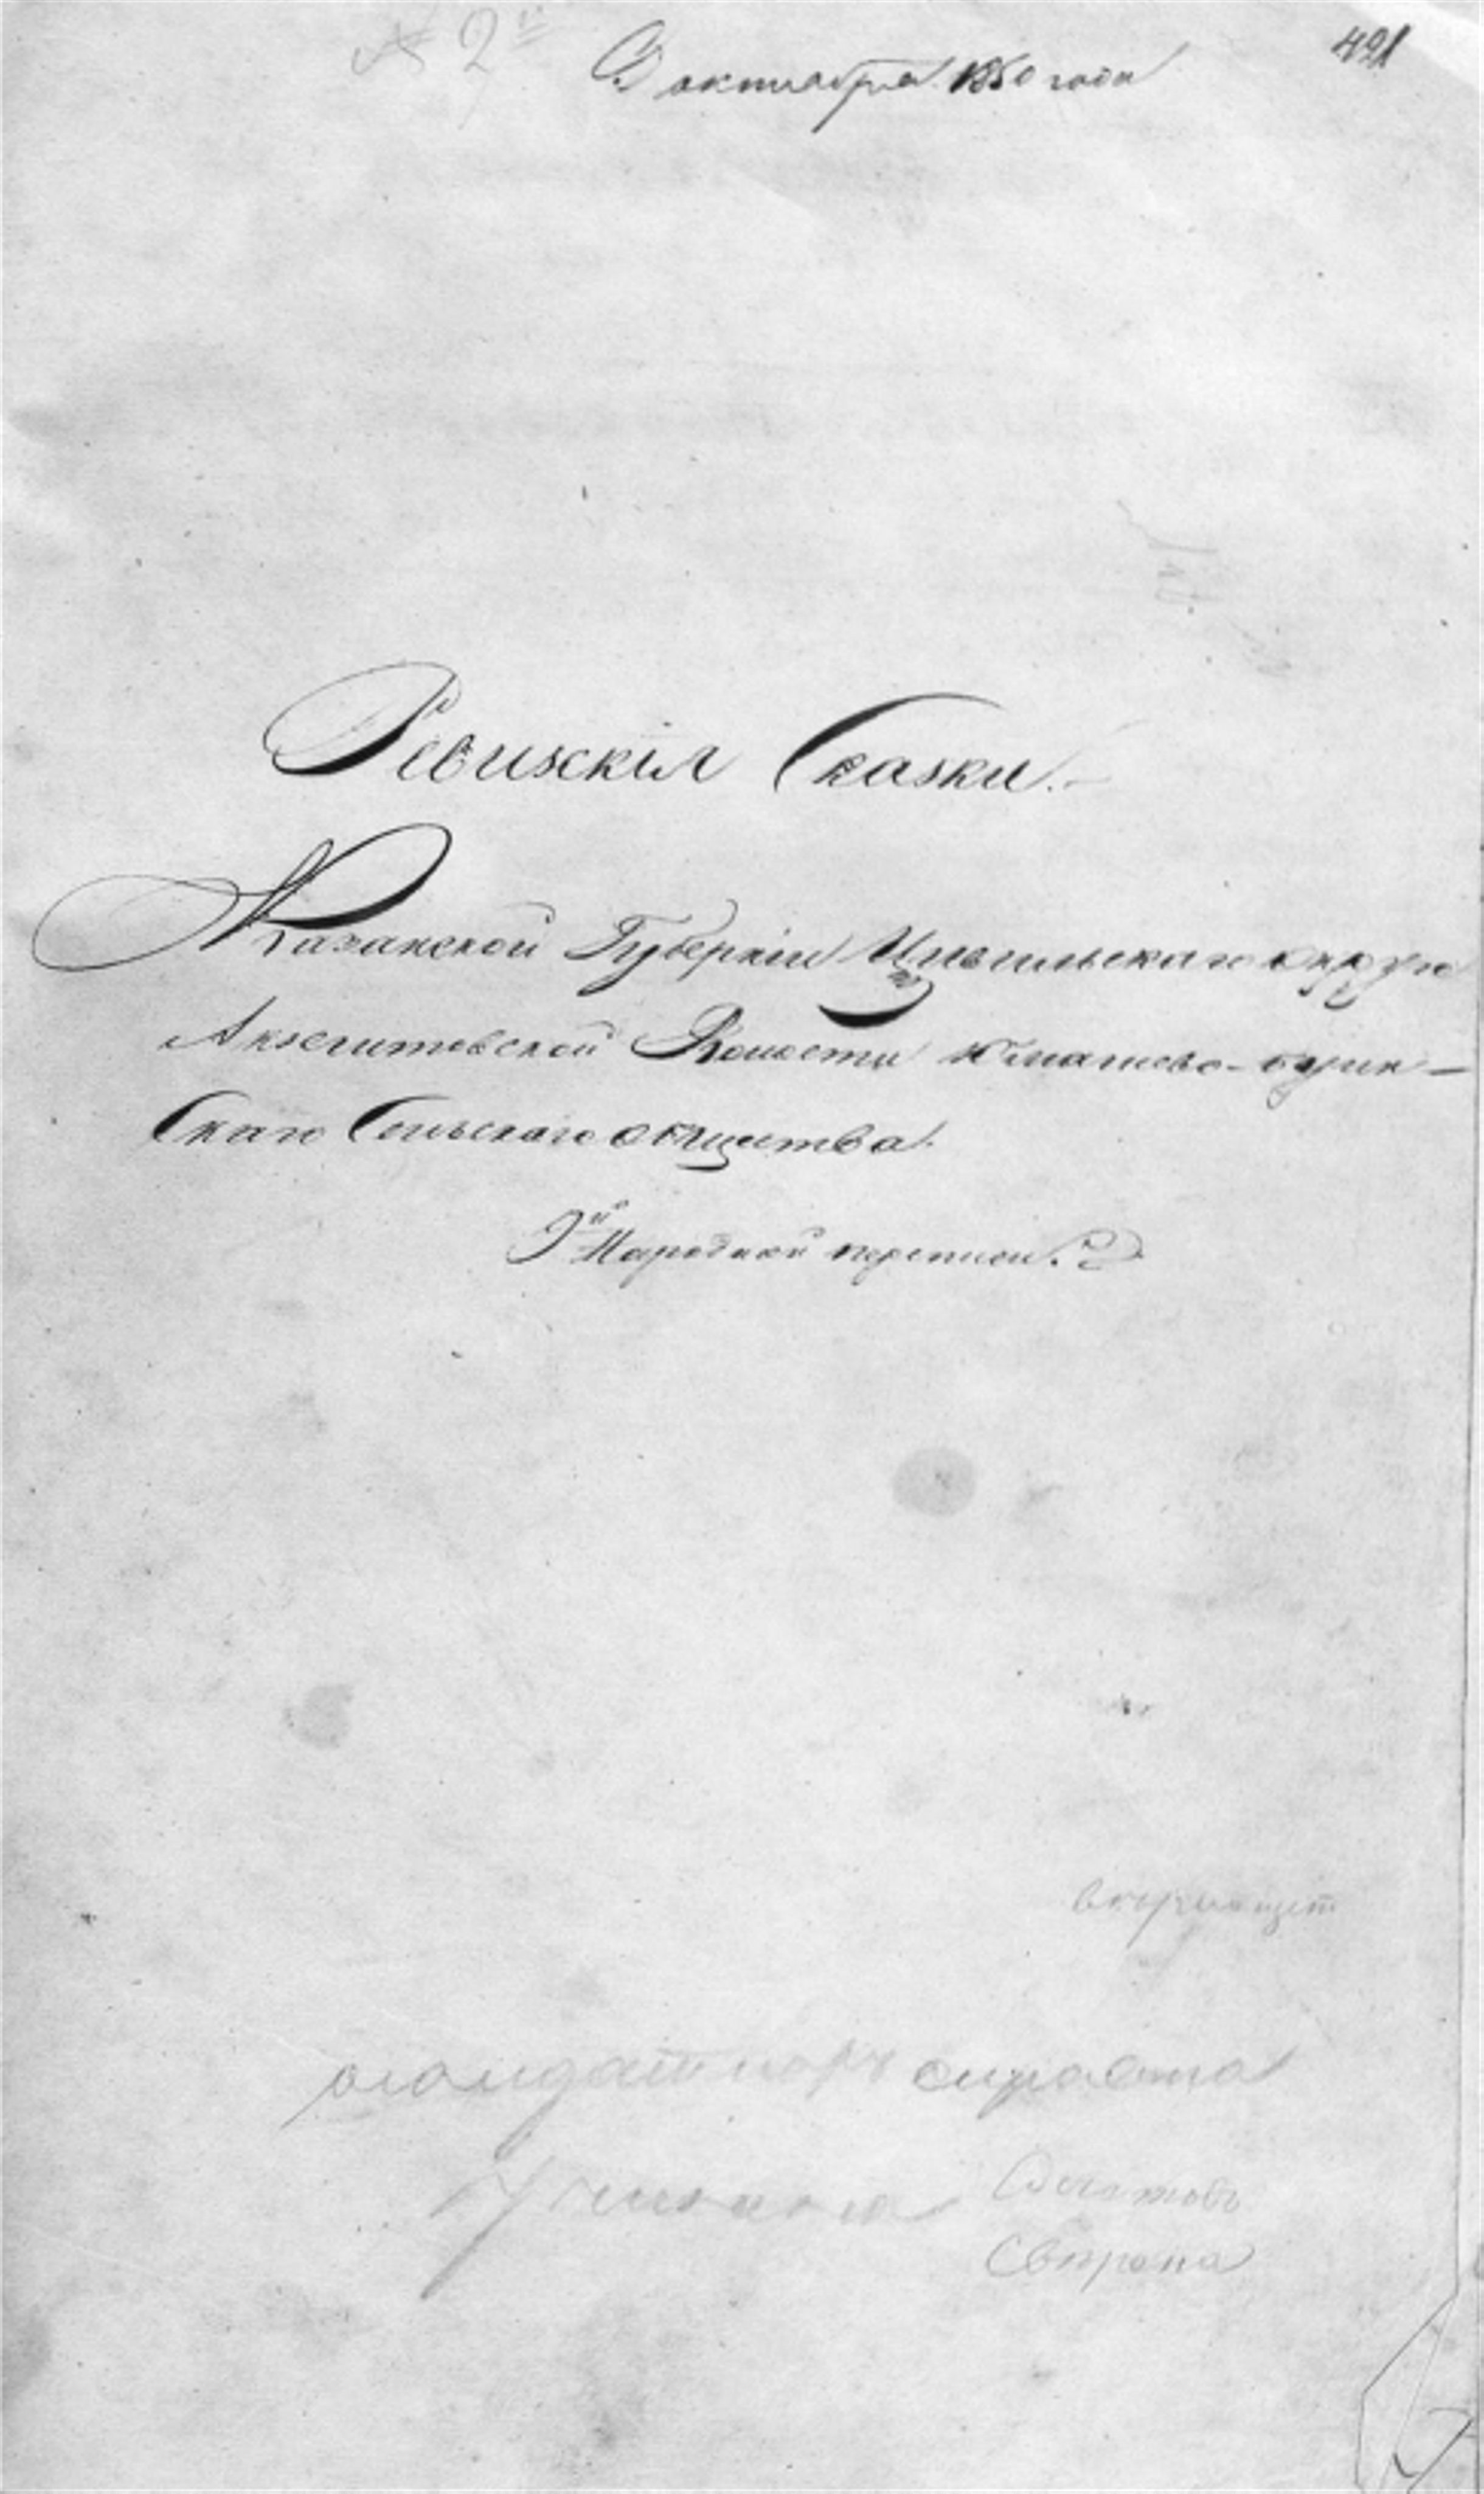 № 2й
9 октября 1850 года
491
Ревизскія Сказки.
Казанской Губерніи Цывильскаго округа
Акзегитовской Волости Юмашево-бурин-
скаго Сельскаго общества.
9й Народной переписи.
справка